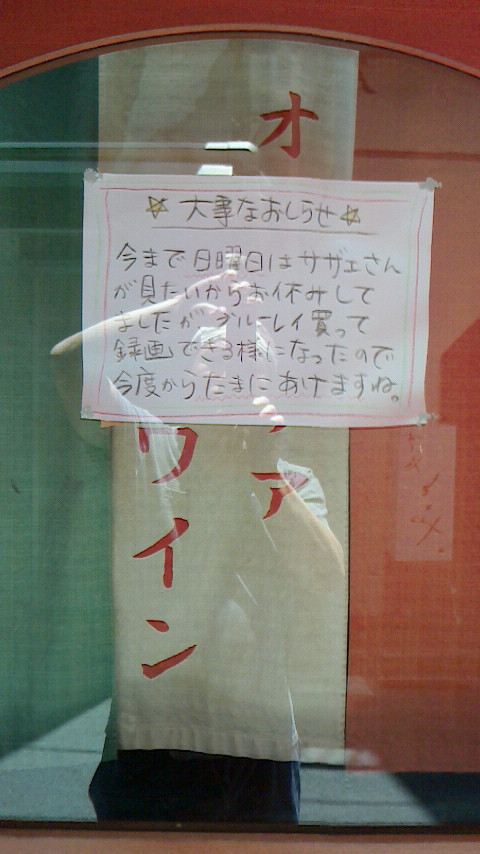 ☆大事なおしらせ☆
今まで日曜日はサザエさん
が見たいからお休みして
ましたがブルーレイ買って
録画できる様になったので
今度からたまにあけますね。
オ
ア
ワイン